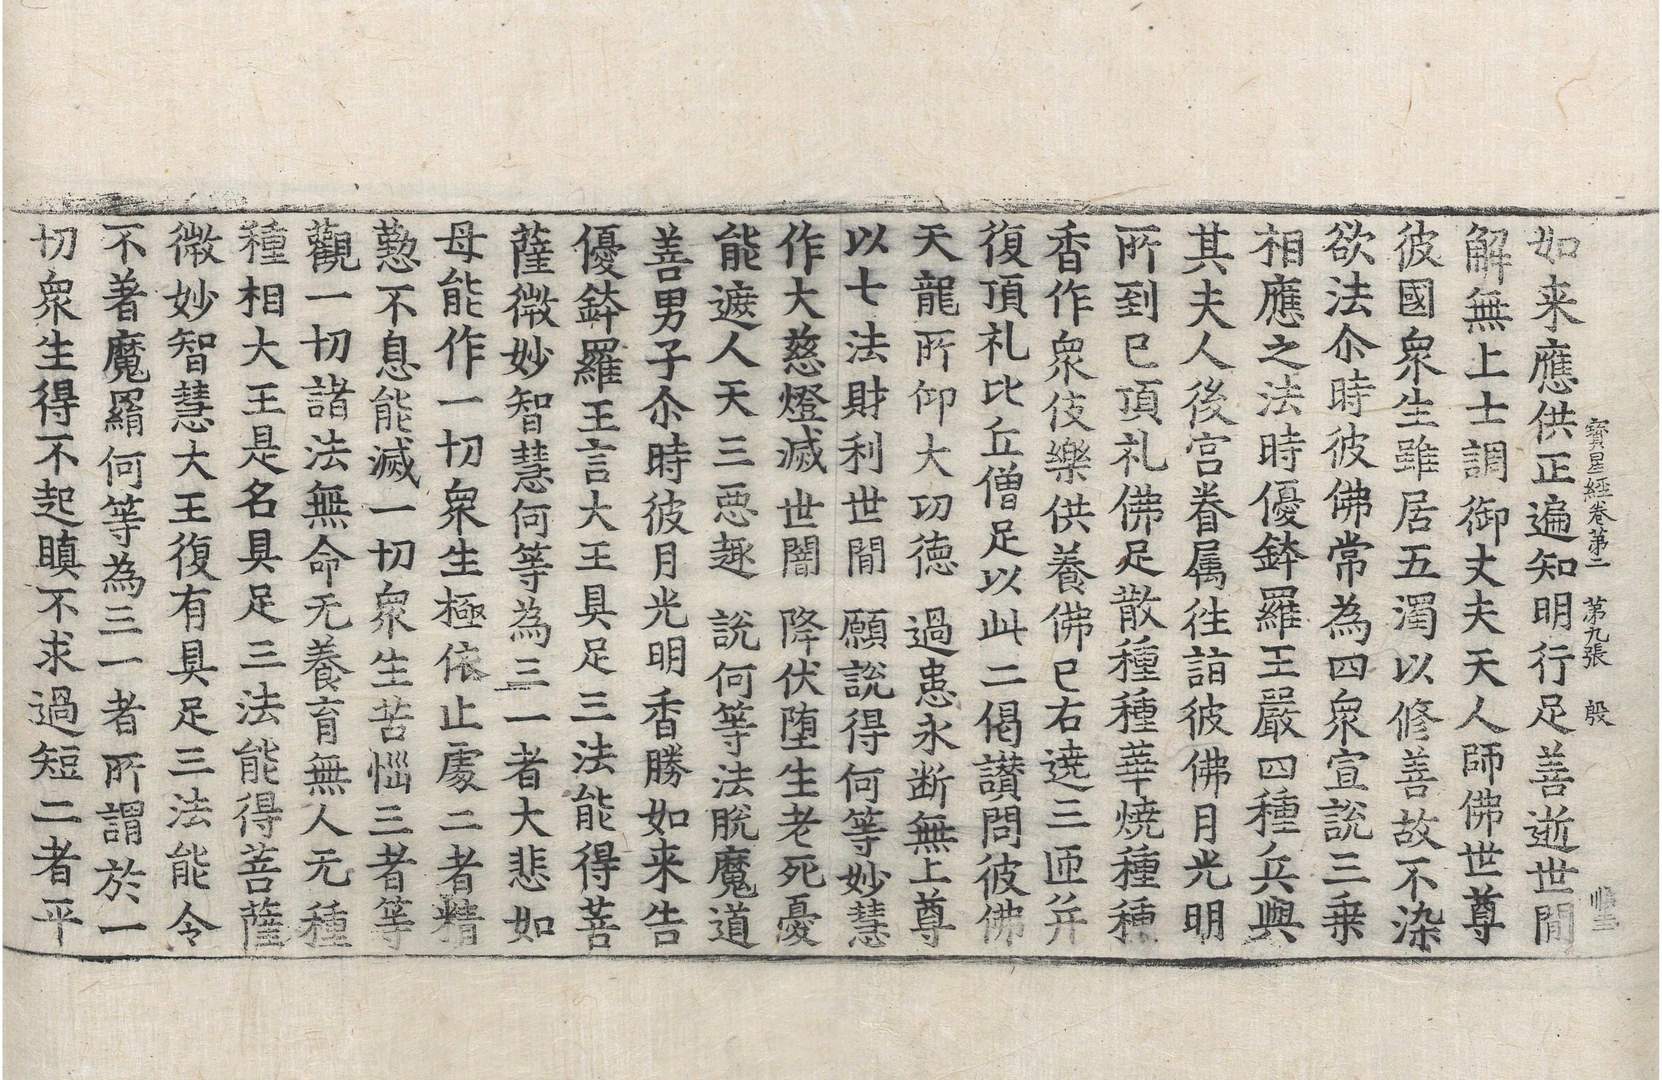 寶星經卷第二 第九張 殷
如来應供正遍知明行足善逝世間
解無上士調御丈夫天人師佛世尊
彼國衆生雖居五濁以修善故不染
欲法尒時彼佛常為四衆宣說三乗
相應之法時優鉢羅王嚴四種兵與
其夫人後宮眷属徃詣彼佛月光明
所到已頂礼佛足散種種華燒種種
香作衆伎樂供養佛已右遶三匝并
復頂礼比丘僧足以此二偈讃問彼佛
天龍所仰大功德 過患永断無上尊
以七法財利世間 願説得何等妙慧
作大慈燈滅世闇 降伏堕生老死憂
能遮人天三惡趣 説何等法脱魔道
善男子尒時彼月光明香勝如来告
優鉢羅王言大王具足三法能得菩
薩微妙智慧何等為三一者大悲如
母能作一切衆生極依止處二者精
懃不息能滅一切衆生苦惱三者等
觀一切諸法無命无養育無人无種
種相大王是名具足三法能得菩薩
微妙智慧大王復有具足三法能令
不著魔羂何等為三一者所謂於一
切衆生得不起瞋不求過短二者平